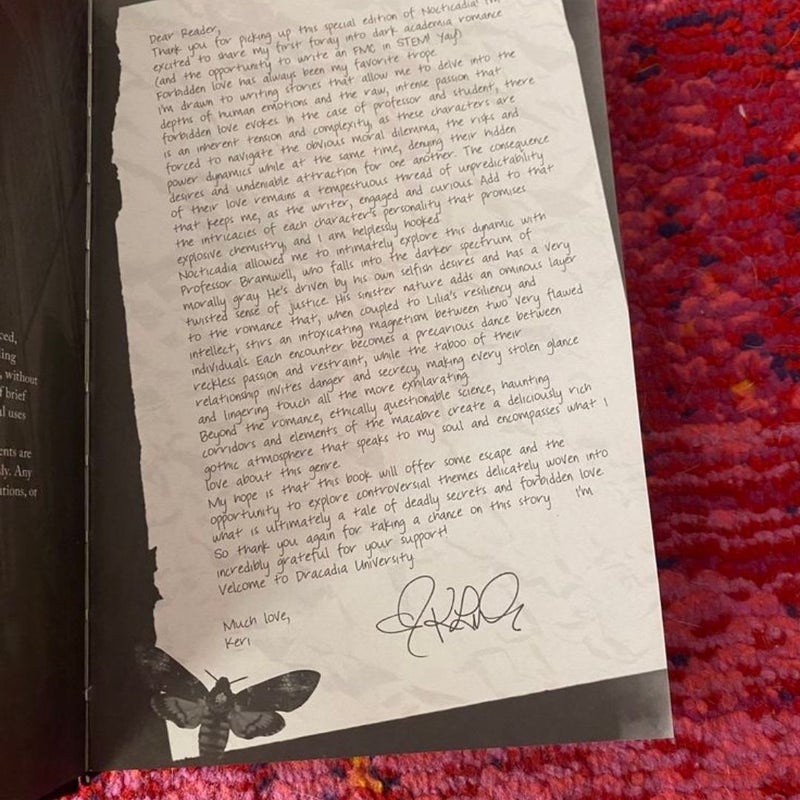 Dear Reader,
Thank you for picking up this special edition of Nocticadia! I'm
excited to share my first foray into dark academia romance
(and the opportunity to write an FMC in STEM! Yay!)
Forbidden love has always been my favorite trope.
I'm drawn to writing stories that allow me to delve into the
depths of human emotions and the raw, intense passion that
forbidden love evokes. In the case of professor and student, there
is an inherent tension and complexity, as these characters are
forced to navigate the obvious moral dilemma, the risks and
power dynamics while at the same time, denying their hidden
desires and undeniable attraction for one another. The consequence
of their love remains a tempestuous thread of unpredictability
that keeps me, as the writer, engaged and curious. Add to that
the intricacies of each character's personality that promises
explosive chemistry, and I am helplessly hooked.
Nocticadia allowed me to intimately explore this dynamic with
Professor Bramwell, who falls into the darker spectrum of
morally gray. He's driven by his own selfish desires and has a very
twisted sense of justice. His sinister nature adds an ominous layer
to the romance that, when coupled to Lilia's resiliency and
intellect, stirs an intoxicating magnetism between two very flawed
individuals. Each encounter becomes a precarious dance between
reckless passion and restraint, while the taboo of their
relationship invites danger and secrecy, making every stolen glance
and lingering touch all the more exhilarating.
Beyond the romance, ethically questionable science, haunting
corridors and elements of the macabre create a deliciously rich
gothic atmosphere that speaks to my soul and encompasses what I
love about this genre.
My hope is that this book will offer some escape and the
opportunity to explore controversial themes delicately woven into
what is ultimately a tale of deadly secrets and forbidden love.
So thank you again for taking a chance on this story. I'm
incredibly grateful for your support!
Welcome to Dracadia University.
Much love,
Keri
ced,
ing
, without
f brief
al uses
ents are
ly. Any
ations, or